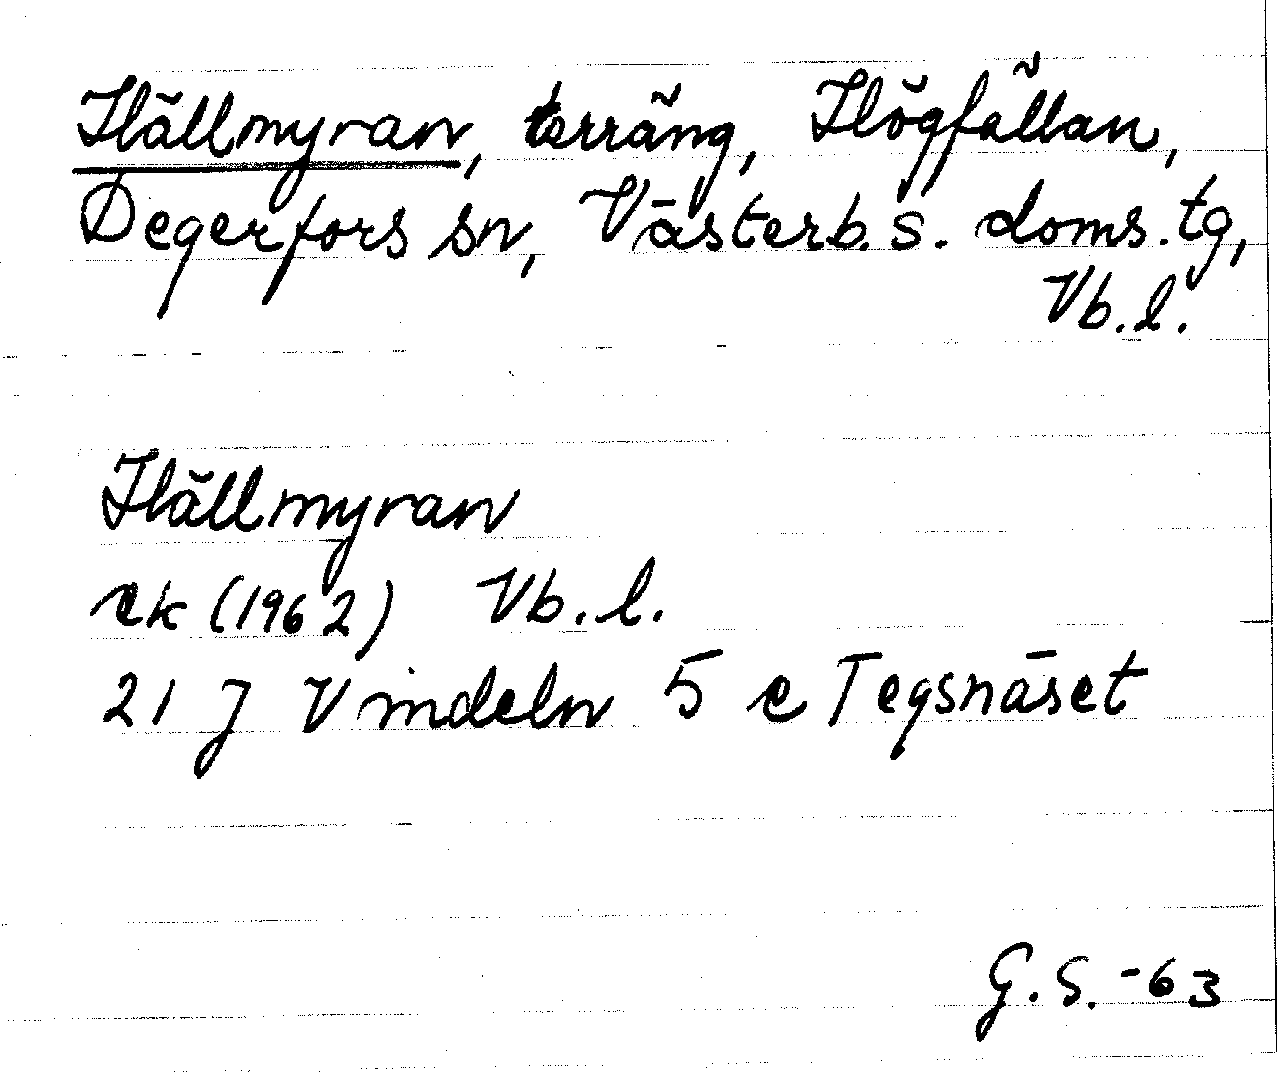 Hällmyran, terräng, Högfällan,
Degerfors sn, Västerb. s. doms. tg,
Vb. l.
Hällmyran
ek (1962) Vb. l.
21 J Vindeln 5 c Tegsnäset
G. S. -63